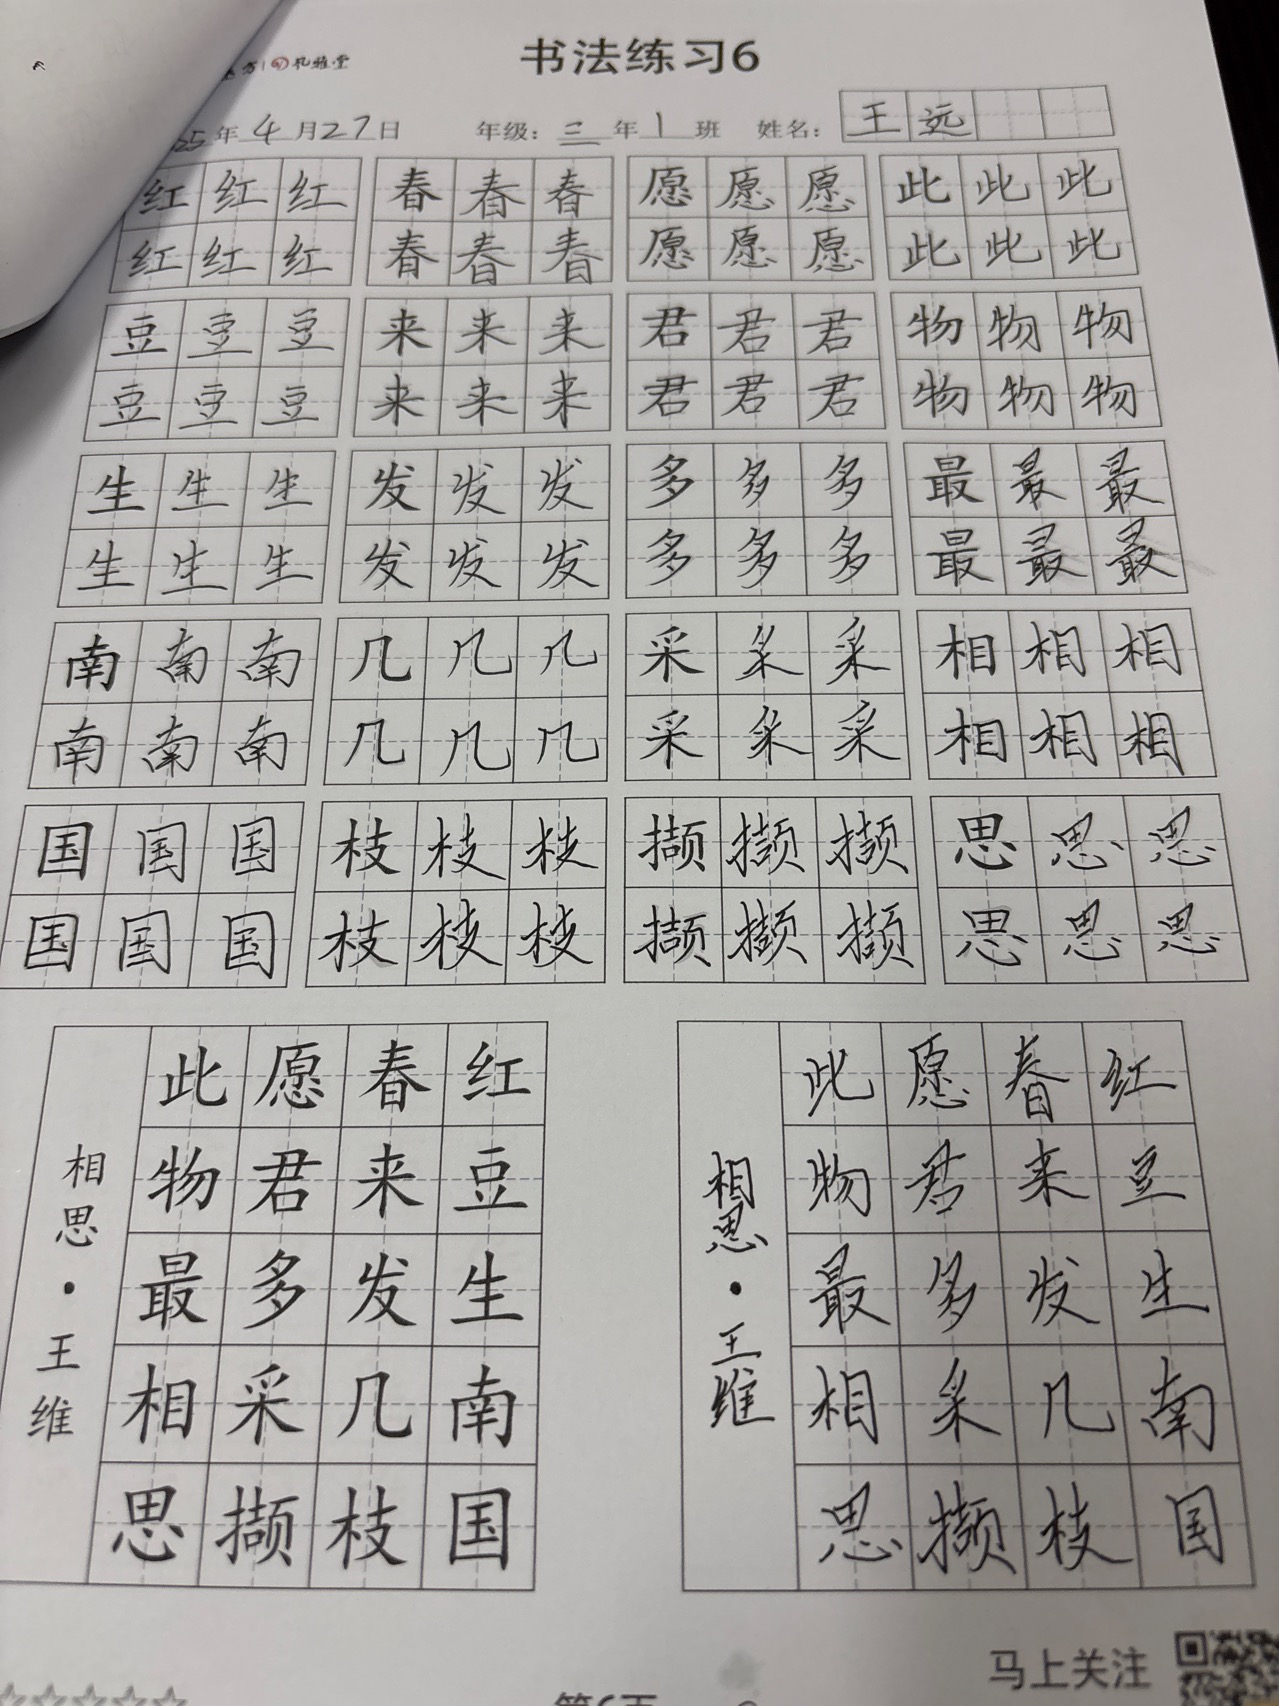 孔雅堂
书法练习6
25年4月27日 年级：三年1班 姓名：王远
红红红 春春春 愿愿愿 此此此
红红红 春春春 愿愿愿 此此此
豆豆豆 来来来 君君君 物物物
豆豆豆 来来来 君君君 物物物
生生生 发发发 多多多 最最最
生生生 发发发 多多多 最最最
南南南 几几几 采采采 相相相
南南南 几几几 采采采 相相相
国国国 枝枝枝 撷撷撷 思思思
国国国 枝枝枝 撷撷撷 思思思
红豆生南国
春来发几枝
愿君多采撷
此物最相思
相思·王维
红豆生南国
春来发几枝
愿君多采撷
此物最相思
相思·王维
马上关注